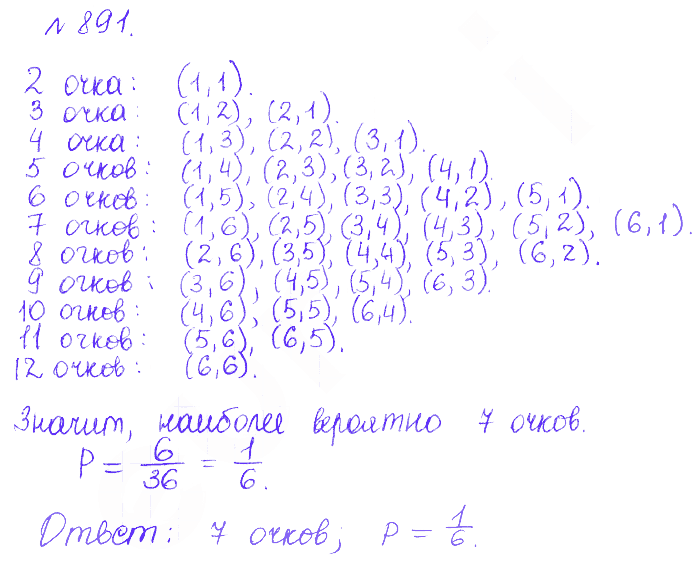 № 891.
2 очка: (1,1).
3 очка: (1,2), (2,1).
4 очка: (1,3), (2,2), (3,1).
5 очков: (1,4), (2,3), (3,2), (4,1).
6 очков: (1,5), (2,4), (3,3), (4,2), (5,1).
7 очков: (1,6), (2,5), (3,4), (4,3), (5,2), (6,1).
8 очков: (2,6), (3,5), (4,4), (5,3), (6,2).
9 очков: (3,6), (4,5), (5,4), (6,3).
10 очков: (4,6), (5,5), (6,4).
11 очков: (5,6), (6,5).
12 очков: (6,6).
Значит, наиболее вероятно 7 очков.
P = 6/36 = 1/6.
Ответ: 7 очков; P = 1/6.